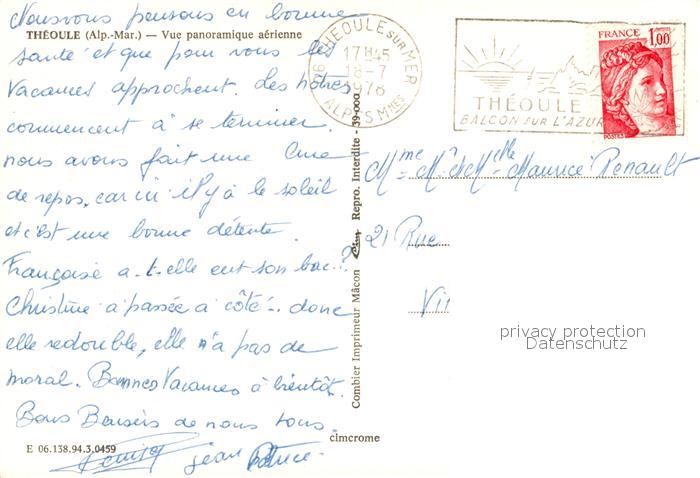 Nous vous pensons en bonne
THÉOULE (Alp.-Mar.) — Vue panoramique aérienne
santé et que pour vous les
vacances approchent. Les nôtres
commencent à se terminer.
nous avons fait une Cure
de repos, car ici il y à le soleil
et c'est une bonne détente.
Françoise a-t-elle eut son bac..?
Christine a passée a côté.. donc
elle redouble, elle n'a pas de
moral. Bonnes Vacances à bientôt.
Bons Baisers de nous tous.
Jean
E 06.138.94.3.0459
Combier Imprimeur Mâcon Cim Repro. Interdite - 39-000
cimcrome
06 THÉOULE SUR MER
17 H 45
18-7
1978
ALPES Mmes
THÉOULE
BALCON SUR L'AZUR
FRANCE 1,00
POSTES
Mme Mr & Melle Maurice Renault
21 Rue
privacy protection
Datenschutz